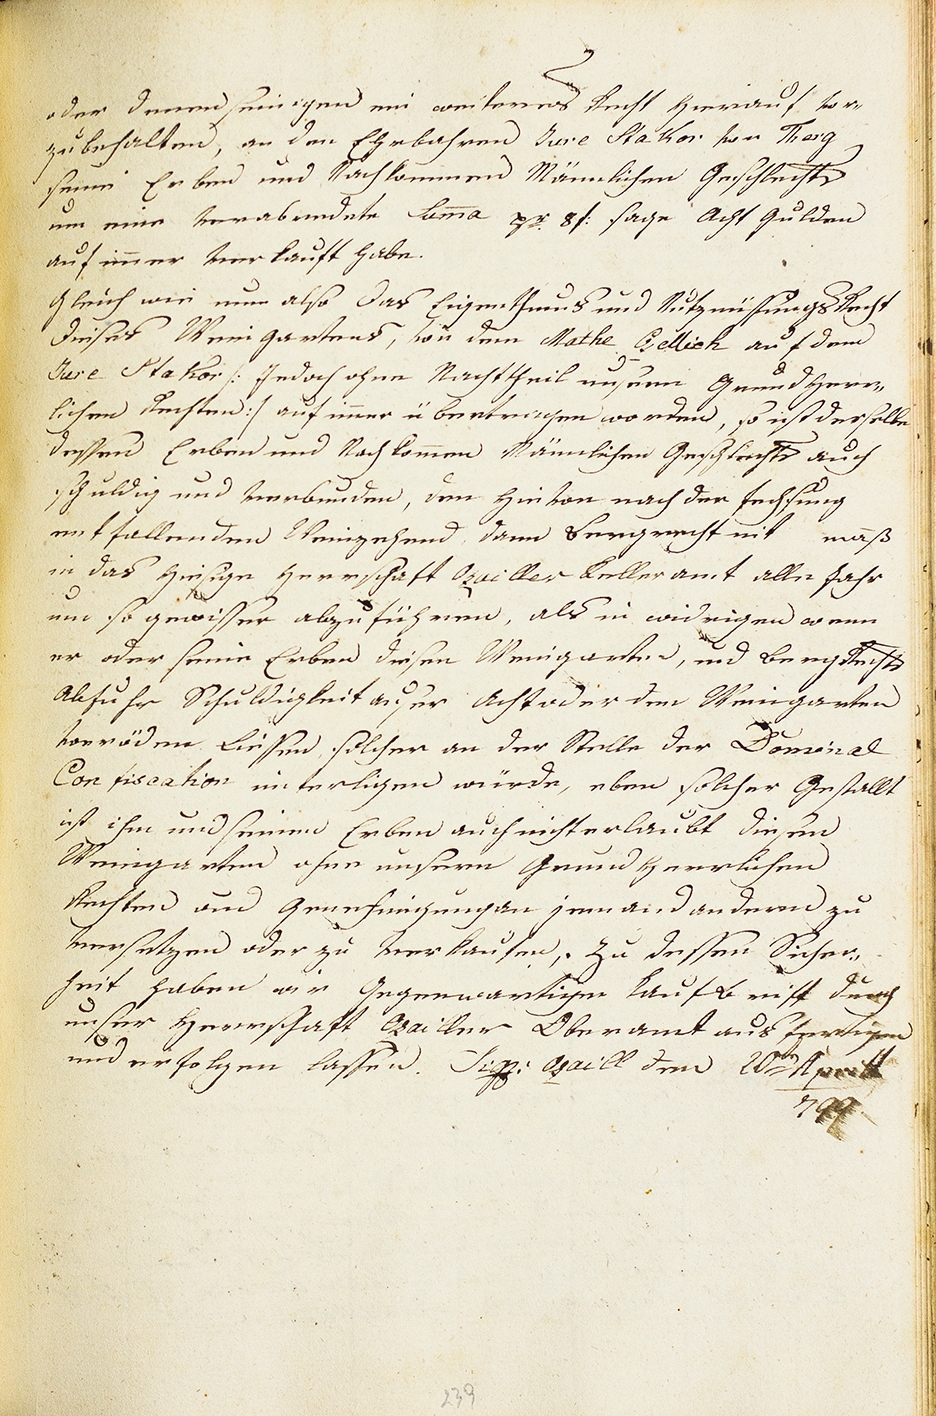 oder denen seinigen ein weiteres Recht hierauf vor-
zubehalten, an den Ehrbahren Jure Stakor von Therg
seine Erben und Nachkommen Männlichen Geschlechts
um eine verabredete Soma pr 8 f: sage Acht Gulden
auf immer verkauft habe.
Gleich wie nun also das Eigenthums und Nutznüssungs Recht
dieses Weingartens, von dem Mathe Bellich auf dem
Jure Stakor /: Jedoch ohne Nachtheil unsern Grundherr-
lichen Rechten :/ auf immer übertragen worden, so ist derselbe
dessen Erben und Nachkommen Männlichen Geschlechts auch
schuldig und verbunden, den hievon nach der Fechsung
entfallenden Weinzehend, dann Bergrecht mit maß
in das hiesige Herrschaft Ozailler Kelleramt alle Jahr
um so gewisser abzuführen, als in widrigen wenn
er oder seine Erben diesen Weingarten, und Berg Rechts
Abfuhr Schuldigkeit auser Acht oder den Weingarten
veröden liessen, solcher an der Stelle der Dominal
Confiscation unterligen würde, eben solcher Gestallt
ist ihm und seinen Erben auch nicht erlaubt diesen
Weingarten ohne unsern Grundherrlichen
Rechten und Genehmigung an jemand anderen zu
versetzen oder zu verkaufen, Zu dessen Sicher-
heit haben wir Gegenwärtigen Kaufbrief durch
unser Herrschaft Ozailler Oberamt ausfertigen
und erfolgen lassen. Sig: Ozaill den 20ten Aprill
799
239